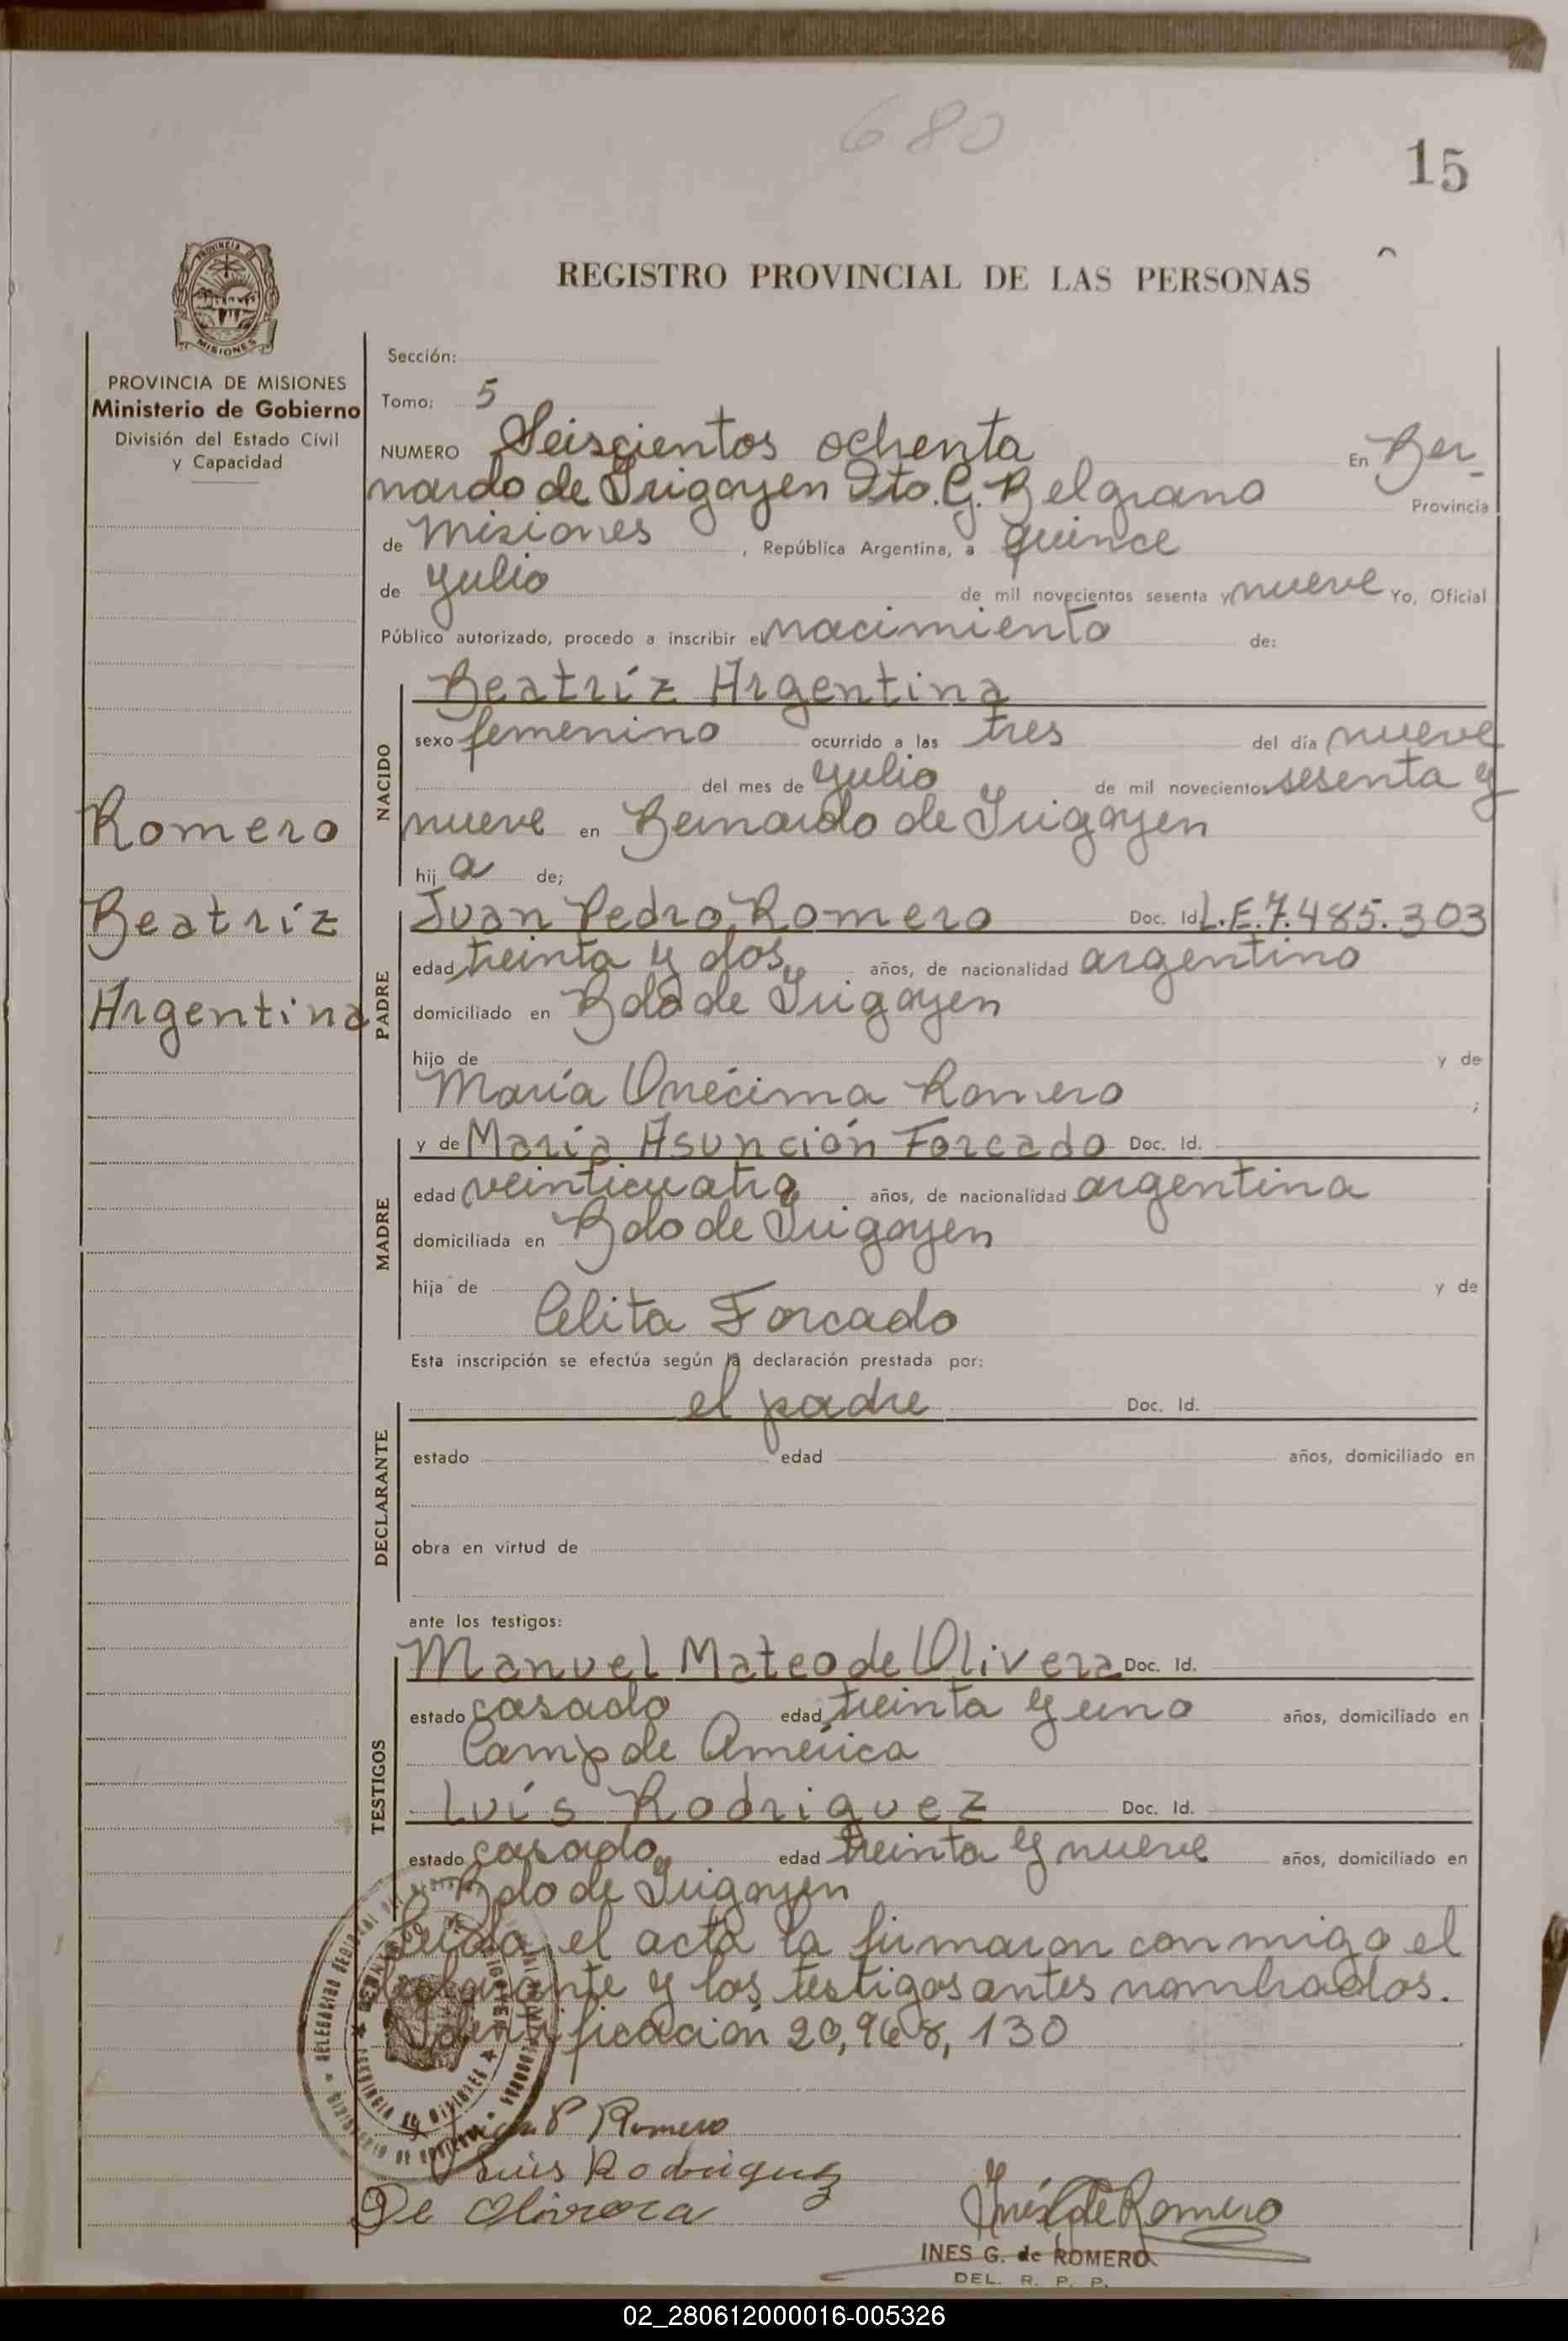 680
15
REGISTRO PROVINCIAL DE LAS PERSONAS
PROVINCIA DE
MISIONES
PROVINCIA DE MISIONES
Ministerio de Gobierno
División del Estado Civil
y Capacidad
Romero
Beatríz
Argentina
Sección:
Tomo: 5
NUMERO Seiscientos ochenta En Ber-
nardo de Irigoyen Dto. G. Belgrano Provincia
de Misiones, República Argentina, a quince
de Julio de mil novecientos sesenta y nueve Yo, Oficial
Público autorizado, procedo a inscribir el nacimiento de:
NACIDO
Beatríz Argentina
sexo femenino ocurrido a las tres del día nueve
del mes de Julio de mil novecientos sesenta y
nueve en Bernardo de Irigoyen
hij a de;
PADRE
Juan Pedro Romero Doc. Id. L.E. 7.485.303
edad treinta y dos años, de nacionalidad argentino
domiciliado en Bdo de Irigoyen
hijo de y de
María Onécima Romero ;
MADRE
y de María Asunción Forcado Doc. Id.
edad veinticuatro años, de nacionalidad argentina
domiciliada en Bdo de Irigoyen
hija de y de
Celita Forcado
Esta inscripción se efectúa según la declaración prestada por:
DECLARANTE
el padre Doc. Id.
estado edad años, domiciliado en
obra en virtud de
ante los testigos:
TESTIGOS
Manuel Mateo de Olivera Doc. Id.
estado casado edad treinta y uno años, domiciliado en
Camp de América
Luís Rodriguez Doc. Id.
estado casado edad treinta y nueve años, domiciliado en
Bdo de Irigoyen
Leida el acta la firmaron conmigo el
declarante y los testigos antes nombrados.
Identificación 20,968,130
Juan P Romero
Luis Rodriguez
De Olivera
Inés G de Romero
INES G. de ROMERO
DEL. R. P. P.
02_280612000016-005326